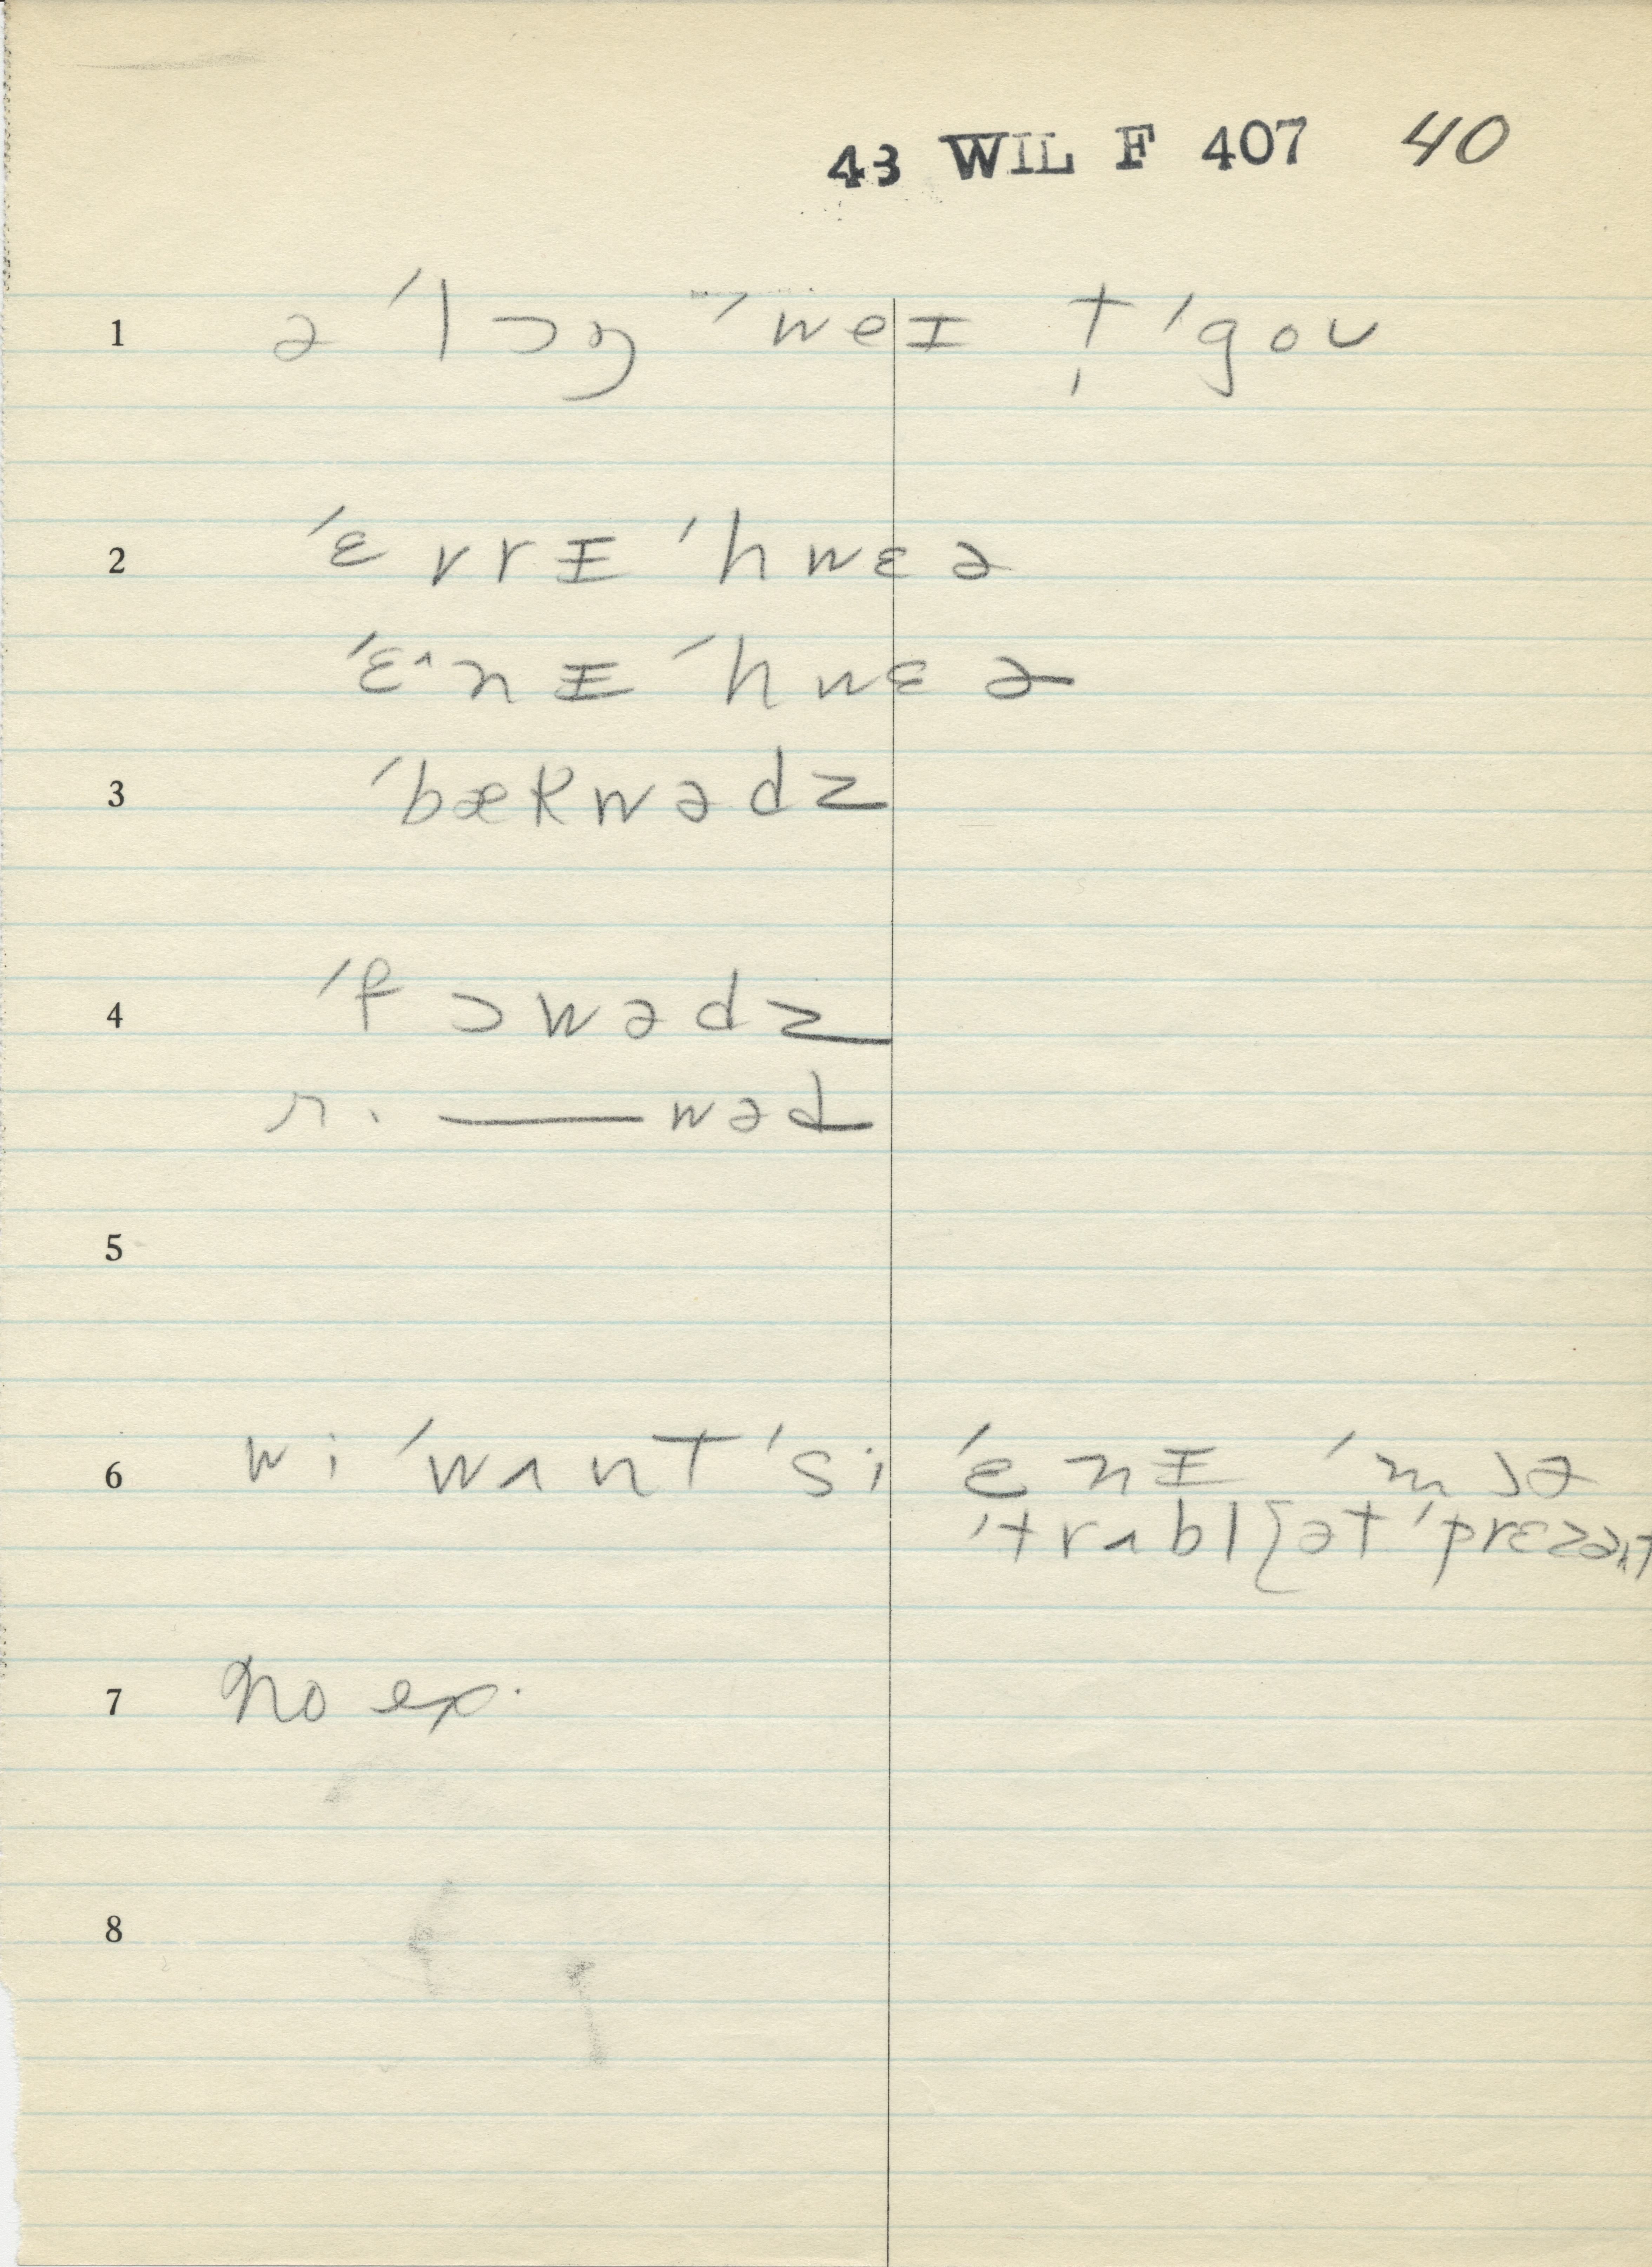 43 WIL F 407 40
1 ə ˈlɔŋ ˈweɪ t̩ ˈgoʊ
2 ˈɛvrɪ ˈhwɛə
ˈɛ^nɪ ˈhwɛə
3 ˈbækwədz
4 ˈfɔwədz
r. —— wəd
5
6 wi ˈwʌnt ˈsi ˈɛnɪ ˈmɔə
ˈtrʌbl{ət ˈprɛzənt
7 No ex.
8